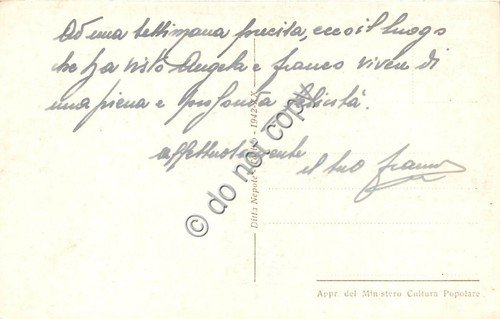 Ad una settimana precisa, ecco il luogo
che ha visto Angela e Franco vivere di
una piena e profonda felicità.
affettuosamente
il tuo Franco
© do not copy
Ditta Nepote - 1942-XX
Appr. del Ministero Cultura Popolare